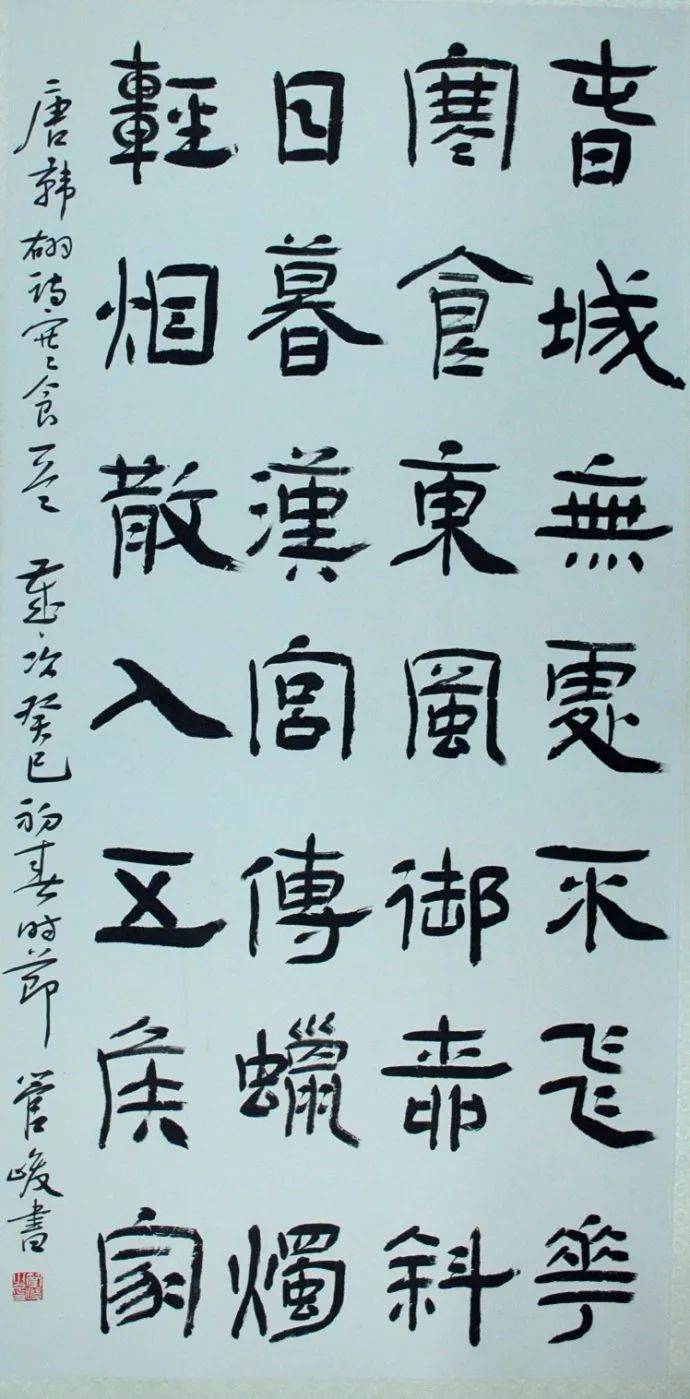 春城無處不飛花
寒食東風御柳斜
日暮漢宮傳蠟燭
輕烟散入五侯家
唐韓翃詩寒食一首 歲次癸巳初春時節 管峻書